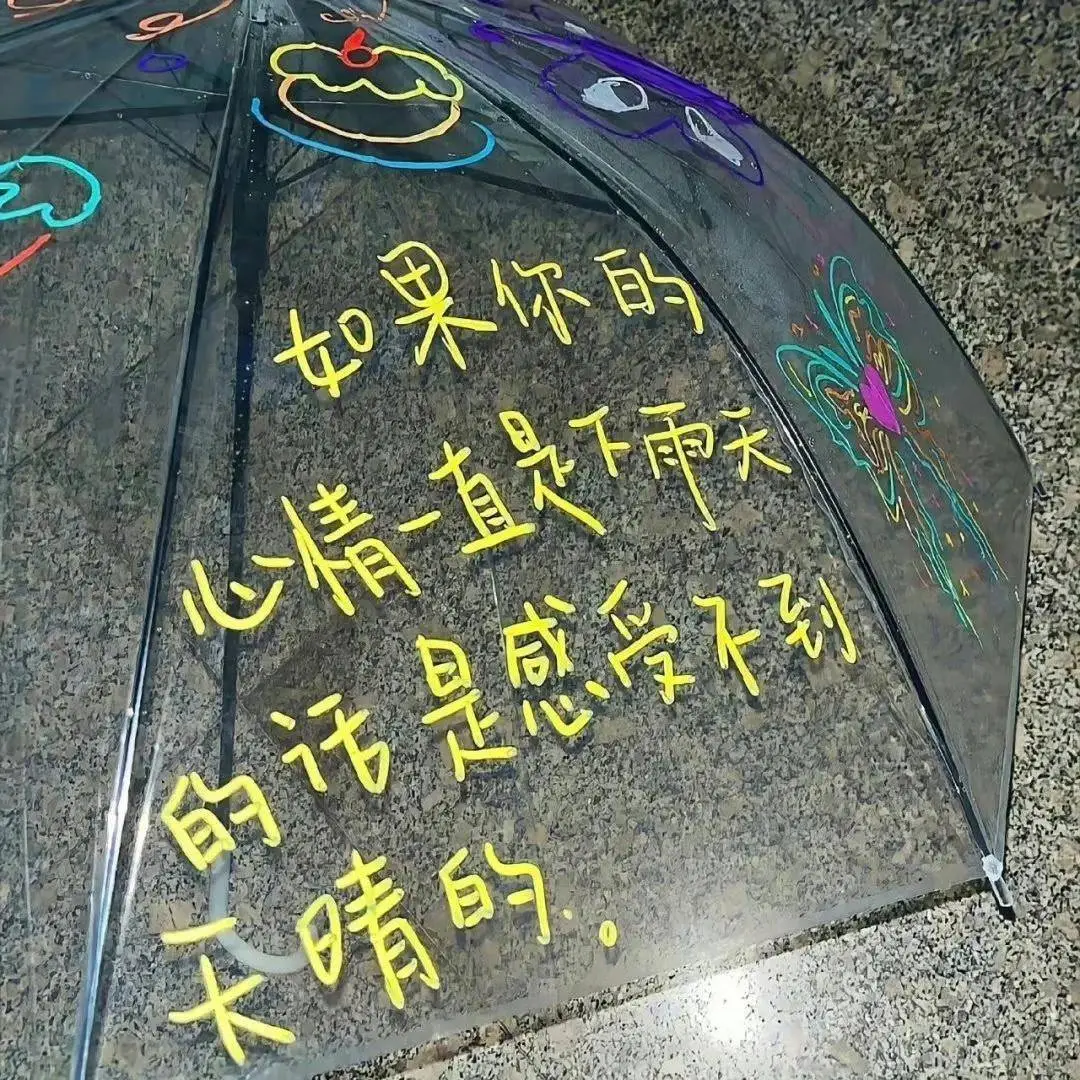 如果你的
心情一直是下雨天
的话是感受不到
天晴的..